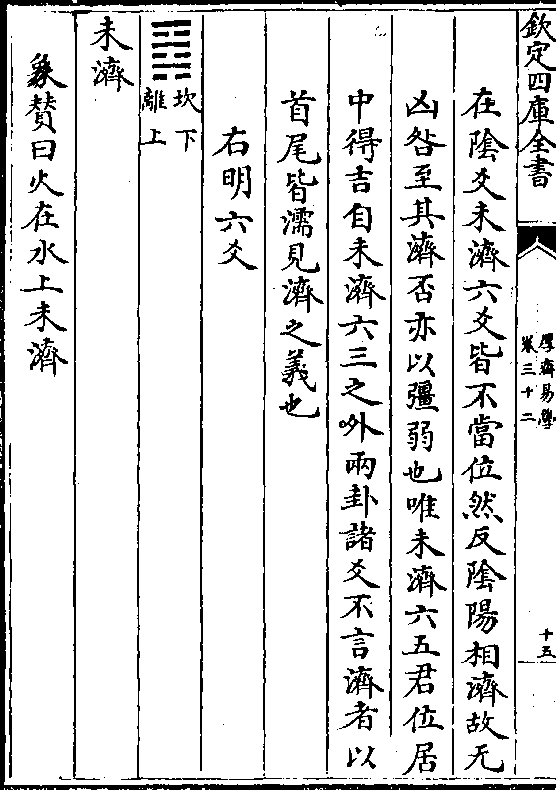 欽定四庫全書
厚齋易學
卷三十二
十五
在陰爻未濟六爻皆不當位然反陰陽相濟故无
凶咎至其濟否亦以彊弱也唯未濟六五君位居
中得吉自未濟六三之外兩卦諸爻不言濟者以
首尾皆濡見濟之義也
右明六爻
坎下
離上
未濟
象賛曰火在水上未濟